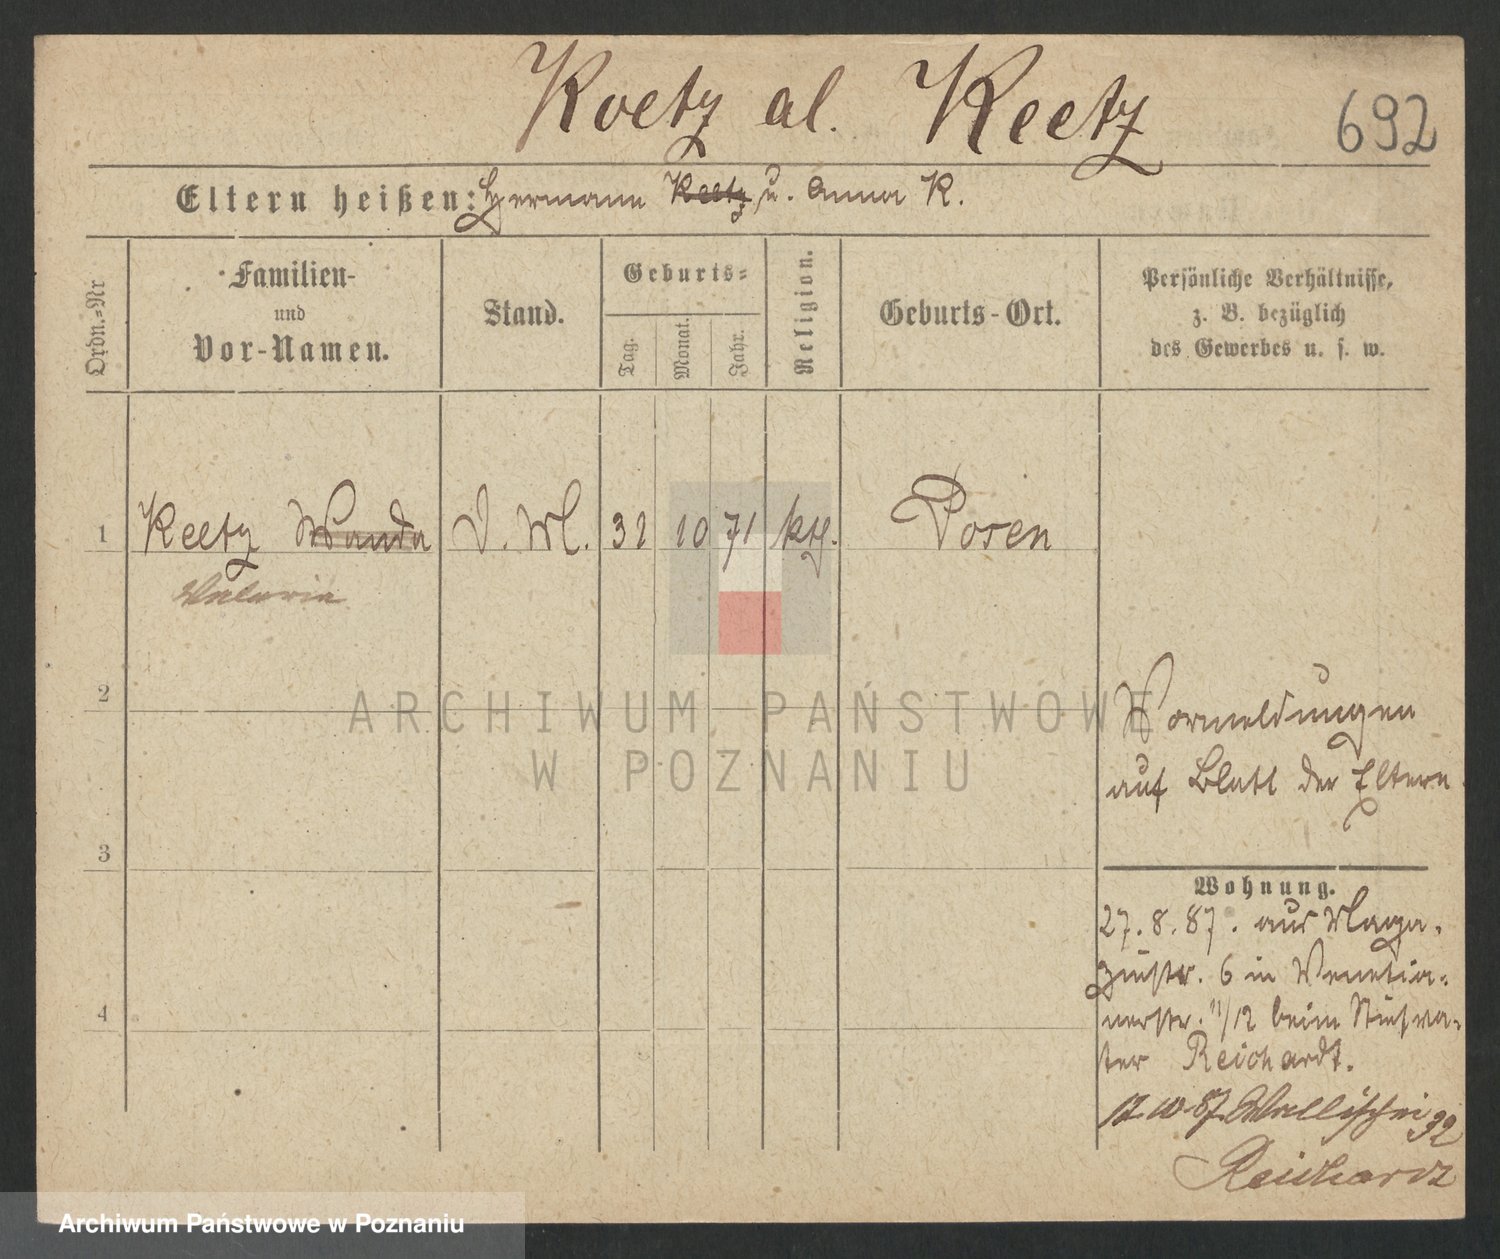 Koetz al. Keetz
692
Eltern heißen: Hermann Keetz u. Anna K.
Ordn.=Nr
Familien-
und
Vor-Namen.
Stand.
Geburts=
Tag.
Monat.
Jahr.
Religion.
Geburts-Ort.
Persönliche Verhältnisse,
z. B. bezüglich
des Gewerbes u. s. w.
1 Keetz Wanda D. Ml. 31 10 71 kth. Posen
Valeria
2
Vormeldungen
auf Blatt der Eltern
3
Wohnung.
27.8.87. aus Maga-
zinstr. 6 in Venetia-
nerstr. 11/12 beim Stiefva-
ter Reichardt.
4
12 10 87 Wallischei 32
Reichardt
ARCHIWUM PAŃSTWOWE
W POZNANIU
Archiwum Państwowe w Poznaniu